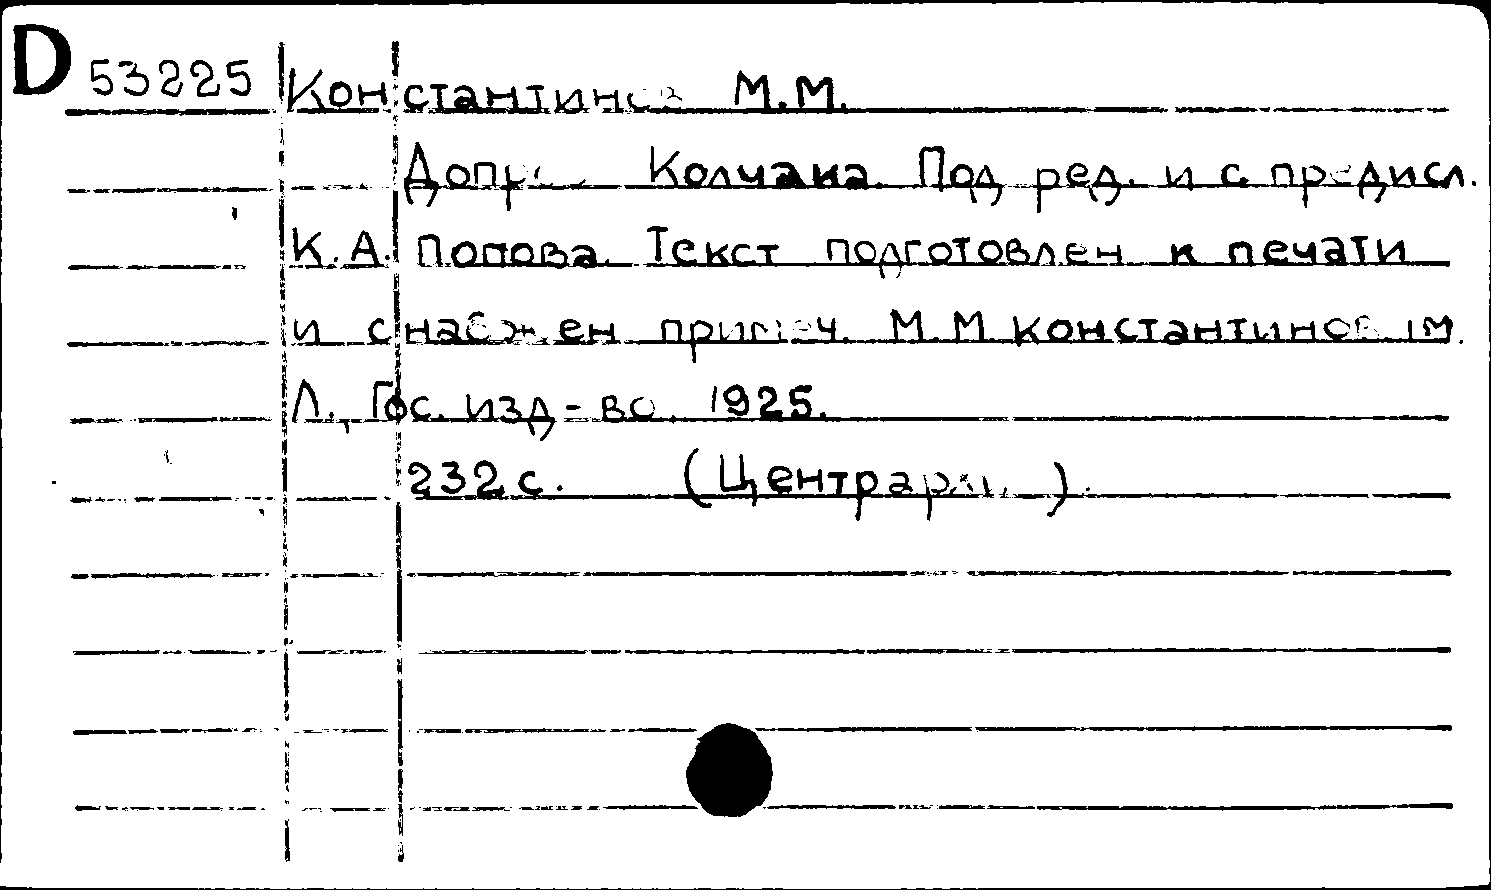 D 53225 Константинов М.М.
Допрос Колчака. Под ред. и с предисл.
К.А. Попова. Текст подготовлен к печати
и снабжен примеч. М.М. Константиновым.
Л., Гос. изд-во, 1925.
232 с. (Центрархив).